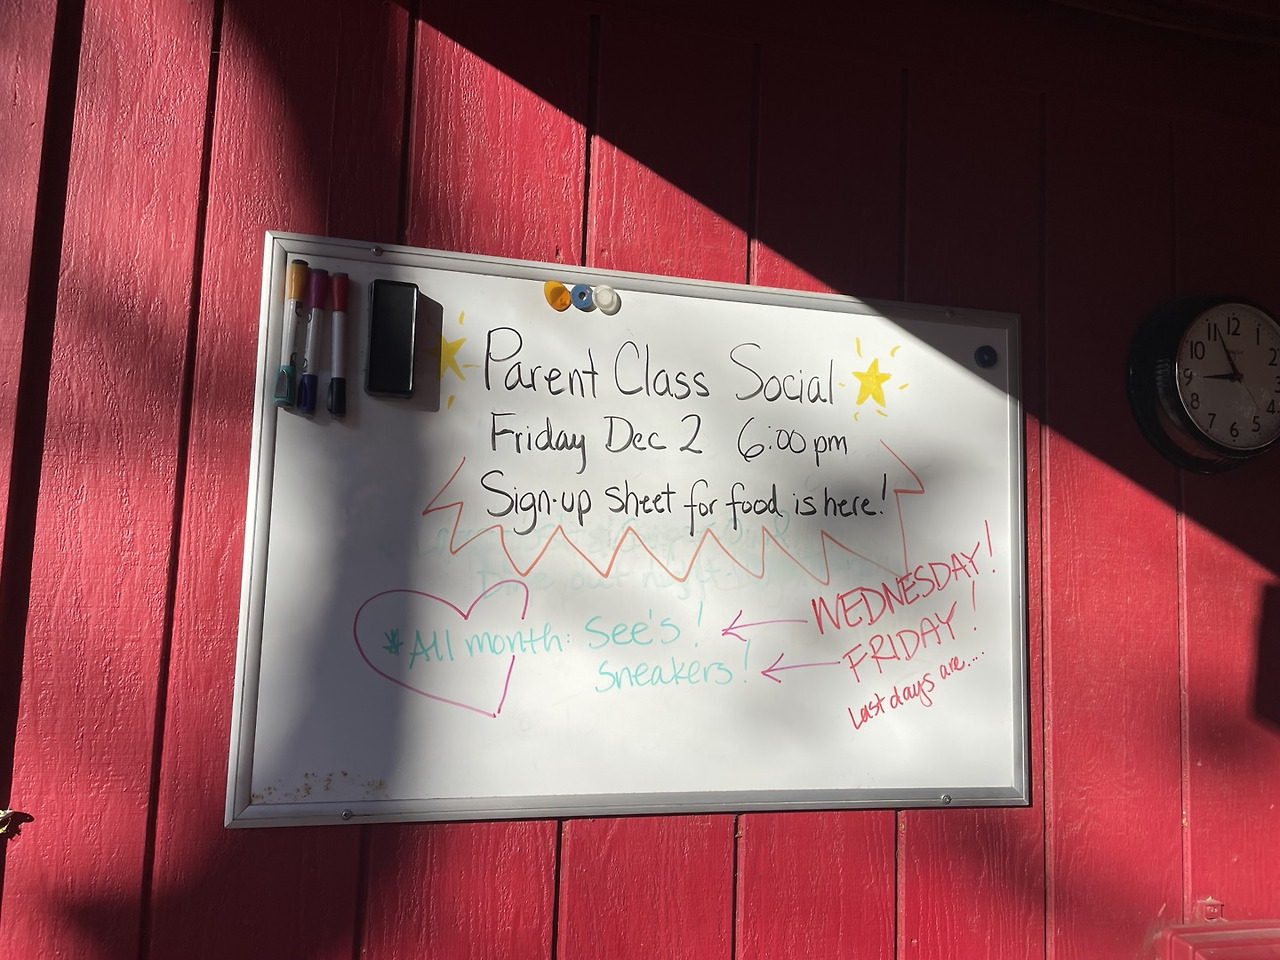 Parent Class Social
Friday Dec 2 6:00 pm
Sign-up sheet for food is here!
*All month: See's!
Sneakers!
WEDNESDAY!
FRIDAY!
Last days are....
11 12 1
10 2
9
8 4
7 6 5